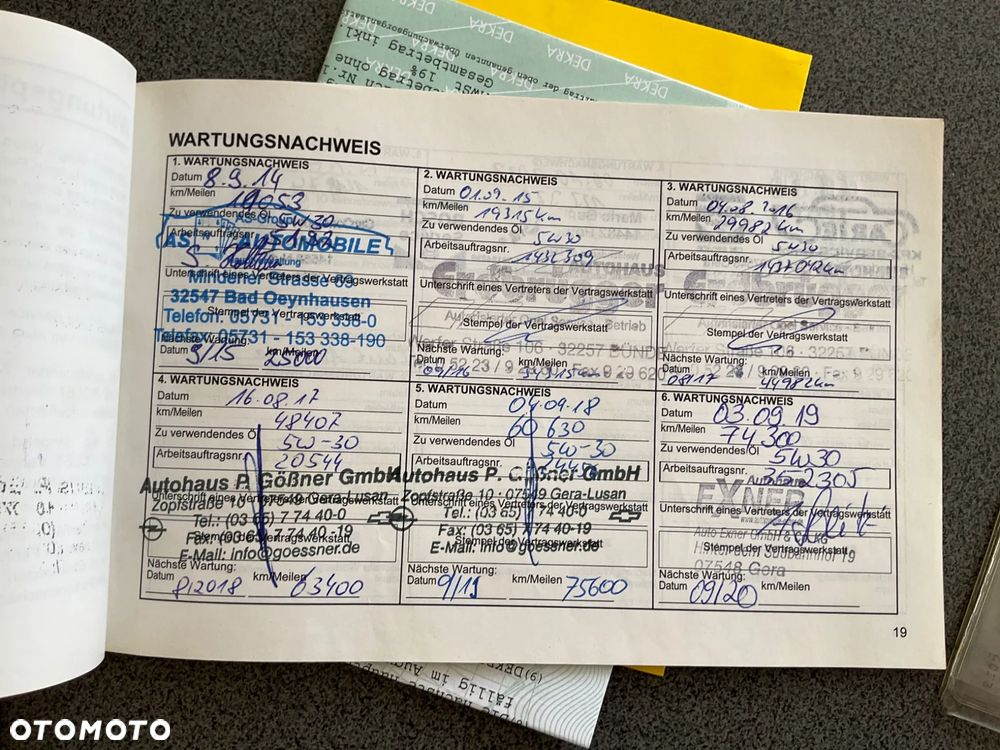 DEKRA
DEKRA
DEKRA
DEKRA
Gesamtbetrag inkl.
19%
WARTUNGSNACHWEIS
1. WARTUNGSNACHWEIS
Datum 8.9.14
km/Meilen
Zu verwendetes Öl 5W30
Arbeitsauftragsnr.
AS AUTOMOBILE
Unterschrift eines Vertreters der Vertragswerkstatt
Mindener Strasse 69
32547 Bad Oeynhausen
Stempel der Vertragswerkstatt
Telefon: 05731 - 153 338-0
Telefax: 05731 - 153 338-190
Nächste Wartung:
Datum 9/15 km/Meilen 25000
2. WARTUNGSNACHWEIS
Datum 01.09.15
km/Meilen 19315km
Zu verwendetes Öl 5W30
Arbeitsauftragsnr. 1432309
AUTOHAUS
Unterschrift eines Vertreters der Vertragswerkstatt
Stempel der Vertragswerkstatt
32257 BÜNDE
Nächste Wartung:
Datum 09/16 km/Meilen 34315km
3. WARTUNGSNACHWEIS
Datum 04.08.2016
km/Meilen 29982km
Zu verwendetes Öl 5W30
Arbeitsauftragsnr.
Unterschrift eines Vertreters der Vertragswerkstatt
Stempel der Vertragswerkstatt
Nächste Wartung:
Datum 08/17 km/Meilen 44982km
4. WARTUNGSNACHWEIS
Datum 16.08.17
km/Meilen 48407
Zu verwendetes Öl 5W-30
Arbeitsauftragsnr. 20544
Autohaus P. Gößner GmbH
Unterschrift eines Vertreters der Vertragswerkstatt
Zopfstraße 10 · 07549 Gera-Lusan
Tel.: (03 65) 7 74 40-0
Fax: (03 65) 7 74 40-19
Stempel der Vertragswerkstatt
E-Mail: info@goessner.de
Nächste Wartung:
Datum 8/2018 km/Meilen 63400
5. WARTUNGSNACHWEIS
Datum 04.09.18
km/Meilen 60630
Zu verwendetes Öl 5W-30
Arbeitsauftragsnr.
Autohaus P. Gößner GmbH
Zopfstraße 10 · 07549 Gera-Lusan
Unterschrift eines Vertreters der Vertragswerkstatt
Tel.: (03 65) 7 74 40-0
Fax: (03 65) 7 74 40-19
Stempel der Vertragswerkstatt
E-Mail: info@goessner.de
Nächste Wartung:
Datum 9/19 km/Meilen 75600
6. WARTUNGSNACHWEIS
Datum 03.09.19
km/Meilen 74300
Zu verwendetes Öl 5W30
Arbeitsauftragsnr. 3522305
EXNER
Unterschrift eines Vertreters der Vertragswerkstatt
Auto Exner GmbH & Co. KG
Stempel der Vertragswerkstatt
Hinter dem Südbahnhof 19
07548 Gera
Nächste Wartung:
Datum 09/20 km/Meilen
19
OTOMOTO